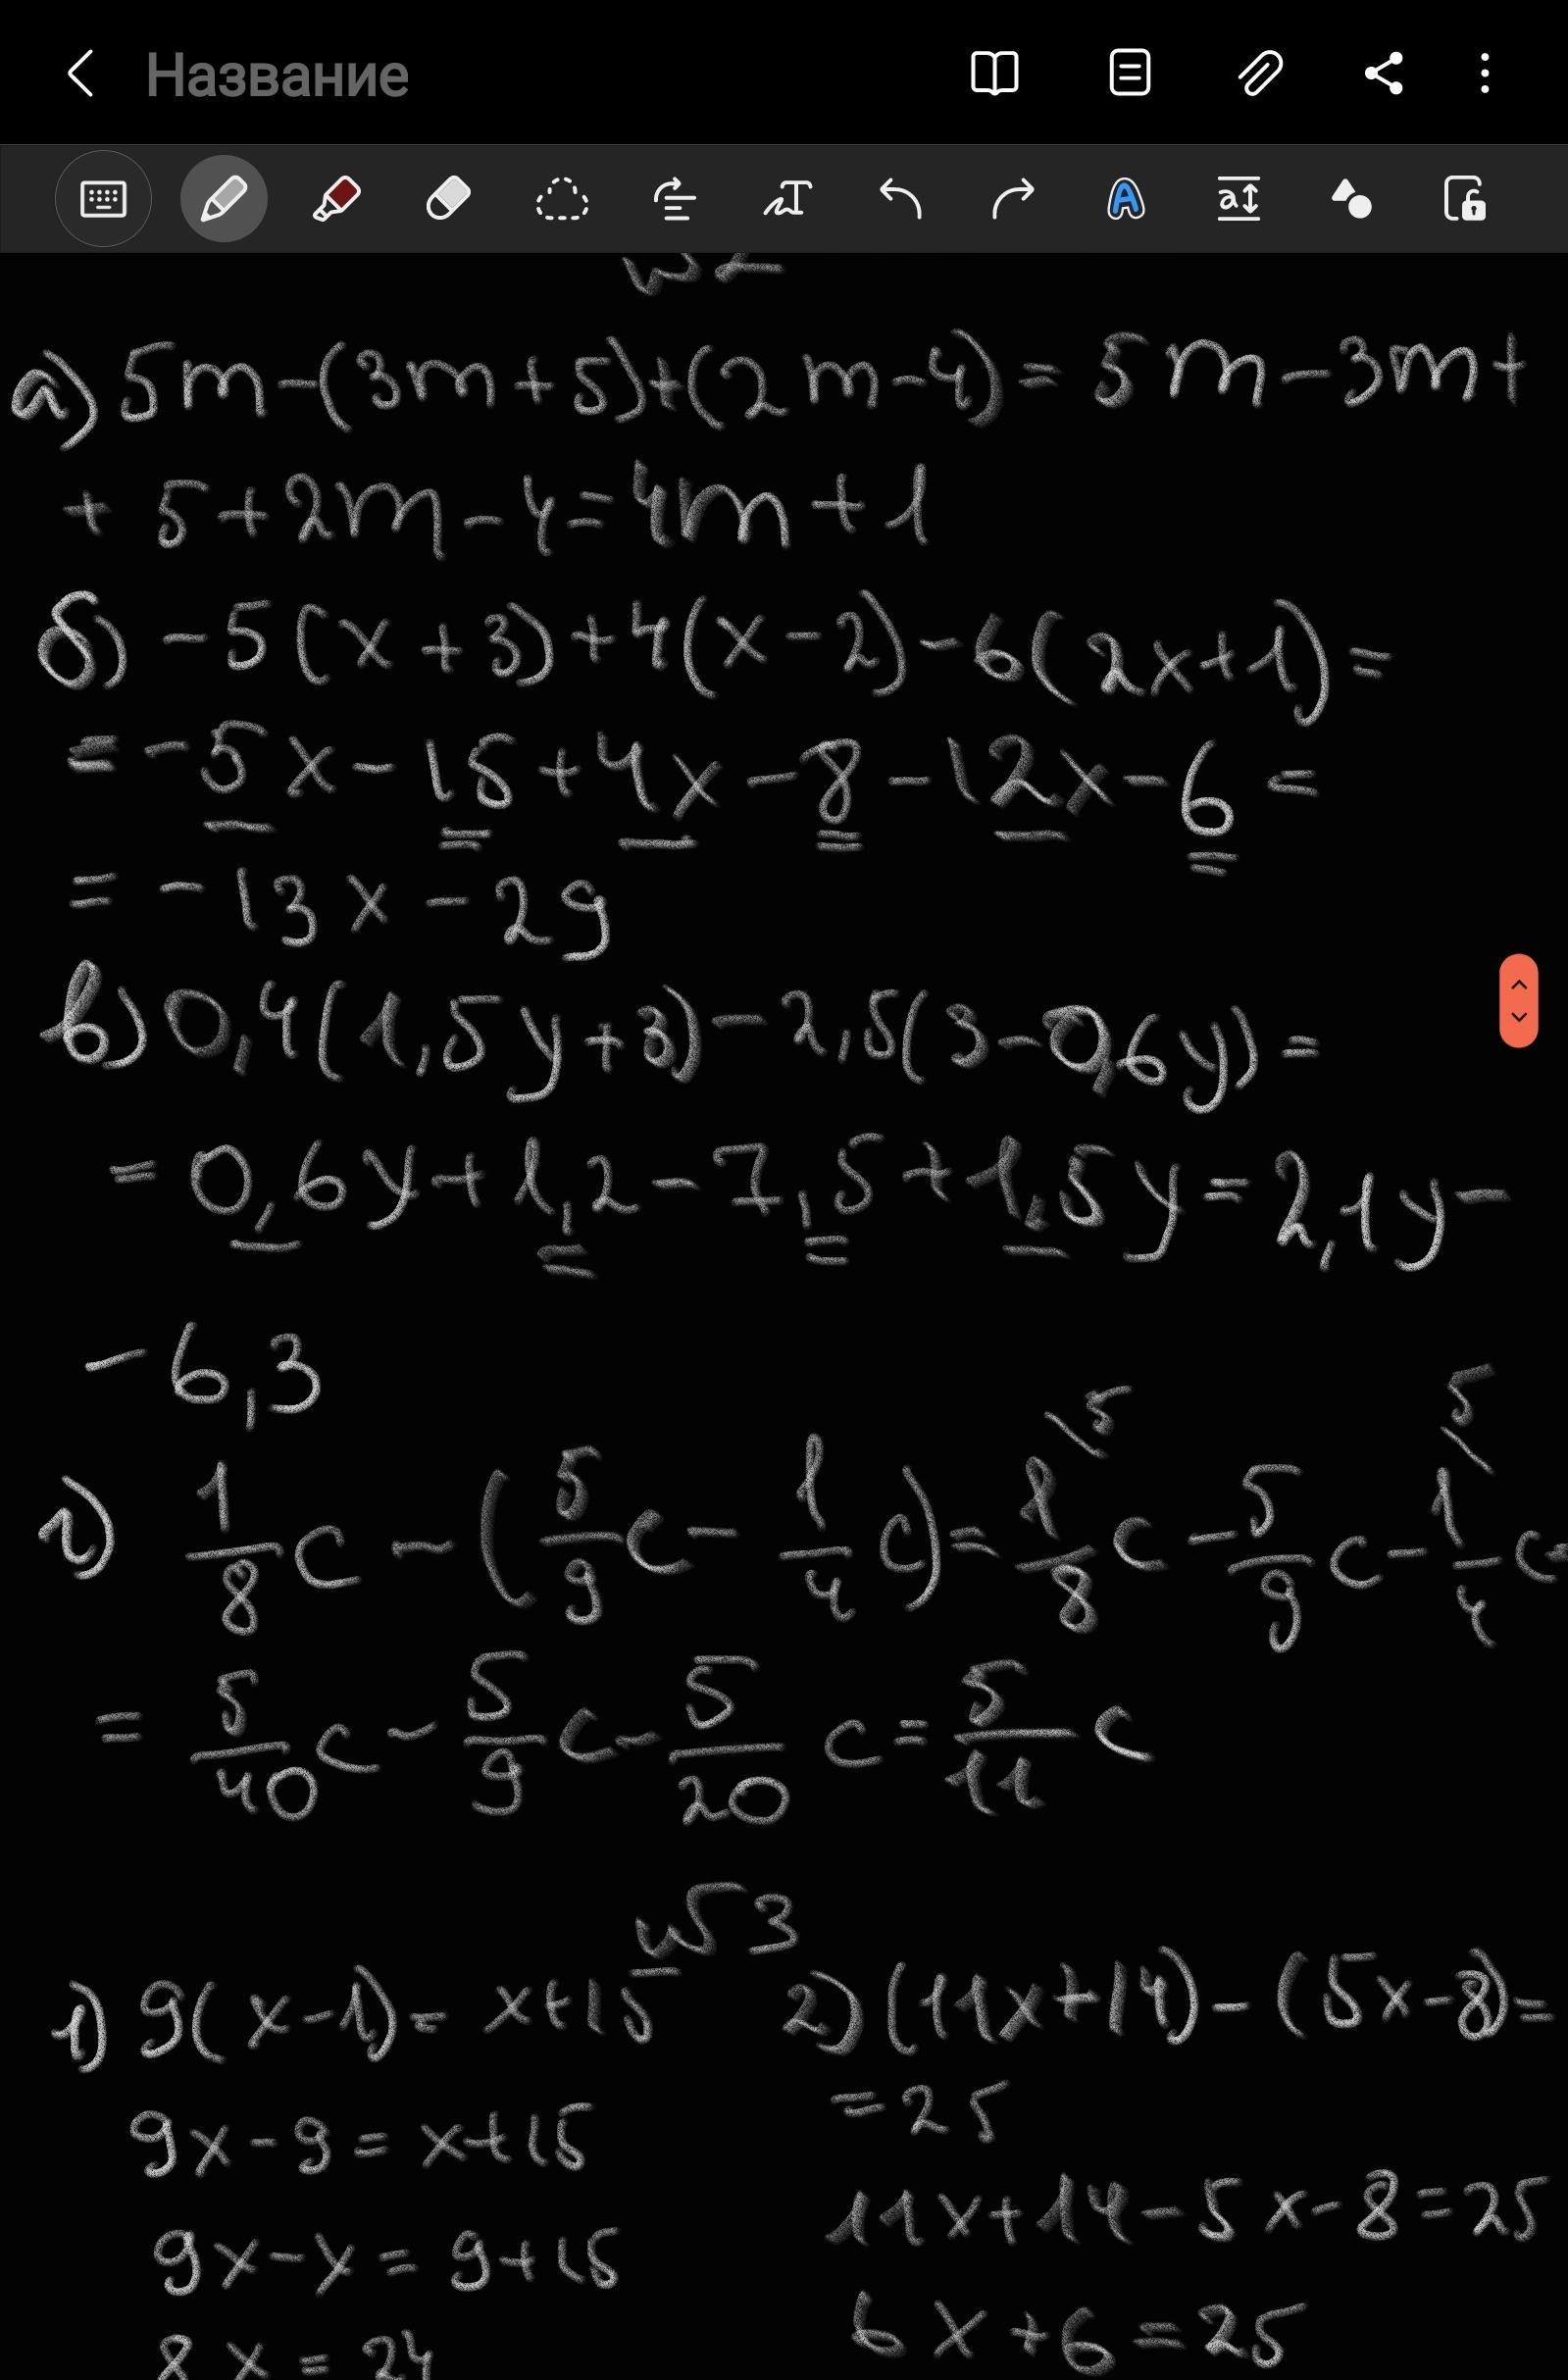 Название
№2
а) 5m-(3m+5)+(2m-4)= 5m-3m+
+ 5+2m-4=4m+1
б) -5(x+3)+4(x-2)-6(2x+1)=
= -5x-15+4x-8-12x-6=
= -13x-29
в) 0,4(1,5y+3)-2,5(3-0,6y)=
= 0,6y+1,2-7,5+1,5y=2,1y-
-6,3
г) 1/8 c - (5/9 c - 1/4 c)= 1/8 \5 c - 5/9 c - 1/4 \5 c=
= 5/40 c - 5/9 c - 5/20 c = 5/11 c
№3
1) 9(x-1)= x+15
9x-9=x+15
9x-x=9+15
8x=24
2) (11x+14)-(5x-8)=
=25
11x+14-5x-8=25
6x+6=25